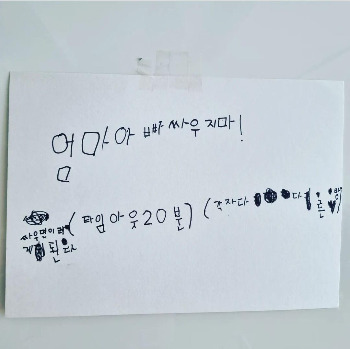 엄마아빠싸우지마!
(타임아웃20분) (각자다 다른
싸우면이
된다